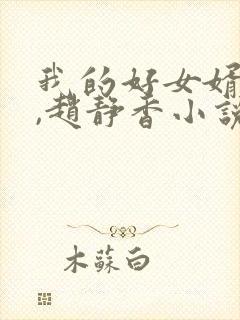 我的好女婿
,趙靜香小說
木蘇白